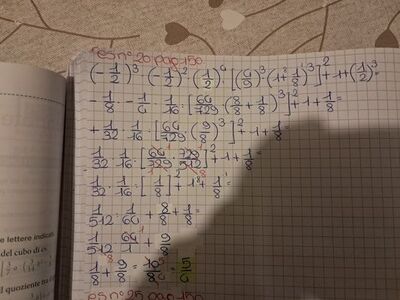 es n° 20 pag 150
(-1/2)³ · (-1/2)² : (1/2)⁴ · [(4/9)³ (1+1/8)³]² + 1 + (1/2)³ =
-1/8 - 1/4 : 1/16 · [64/729 (8/8 + 1/8)³]² + 1 + 1/8 =
+1/32 · 1/16 · [64/729 (9/8)³]² + 1 + 1/8 =
1/32 · 1/16 · [64/729 · 729/512]² + 1 + 1/8 =
1/32 · 1/16 · [1/8]² + 1 + 1/8 =
1/512 : 1/64 + 8/8 + 1/8 =
1/512 · 64/1 + 9/8
1/8 + 9/8 = 10/8 = 5/4
es n° 25 pag 150
e lettere indicati
del cubo di
il quoziente tra